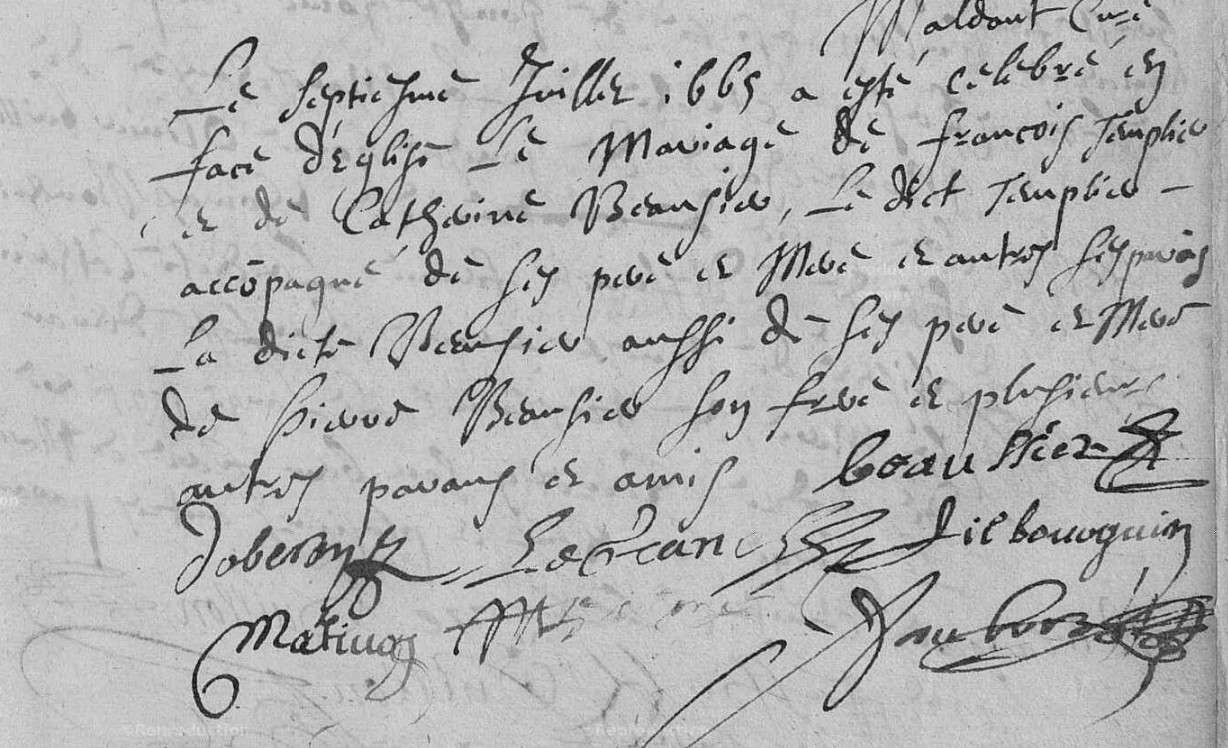 Maldant Curé
Le septiesme Juillet 1665 a esté celebré en
face d'Eglise Le Mariage de françois Templier
et de Catherine Beausier, Le dict Templier -
accōpagné de ses pere et Mere et autres ses parās
La dicte Beausier aussi de ses pere et Mere
de Pierre Beausier son frere et plusieurs
autres parans et amis beaussier
Le
Martin